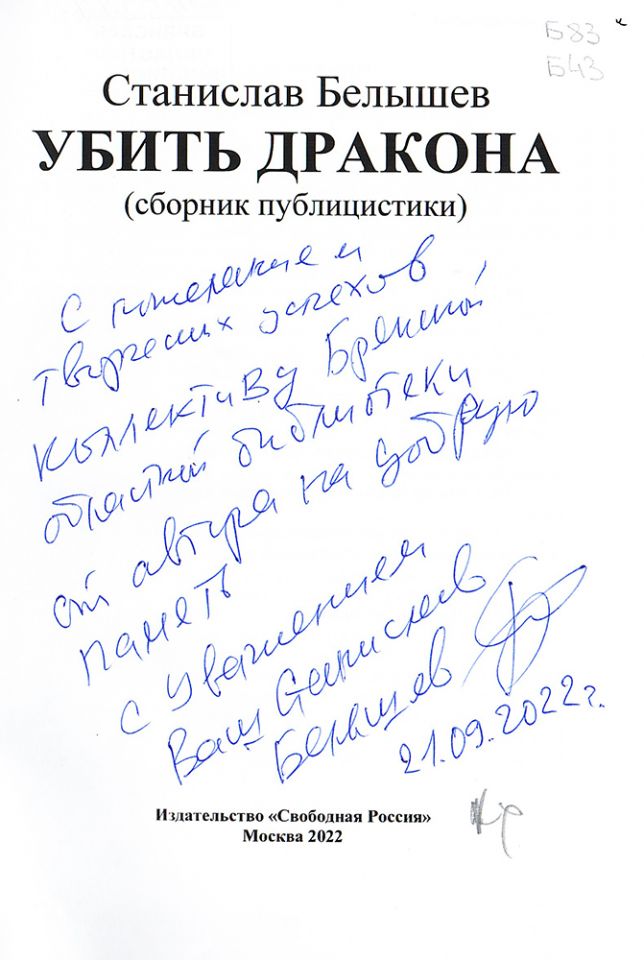 Б83
Б43
Станислав Белышев
УБИТЬ ДРАКОНА
(сборник публицистики)
С пожеланием
творческих успехов
коллективу Брянской
областной библиотеки
от автора на добрую
память
с уважением
Ваш Станислав
Белышев
21.09.2022 г.
Издательство «Свободная Россия»
Москва 2022
Кр